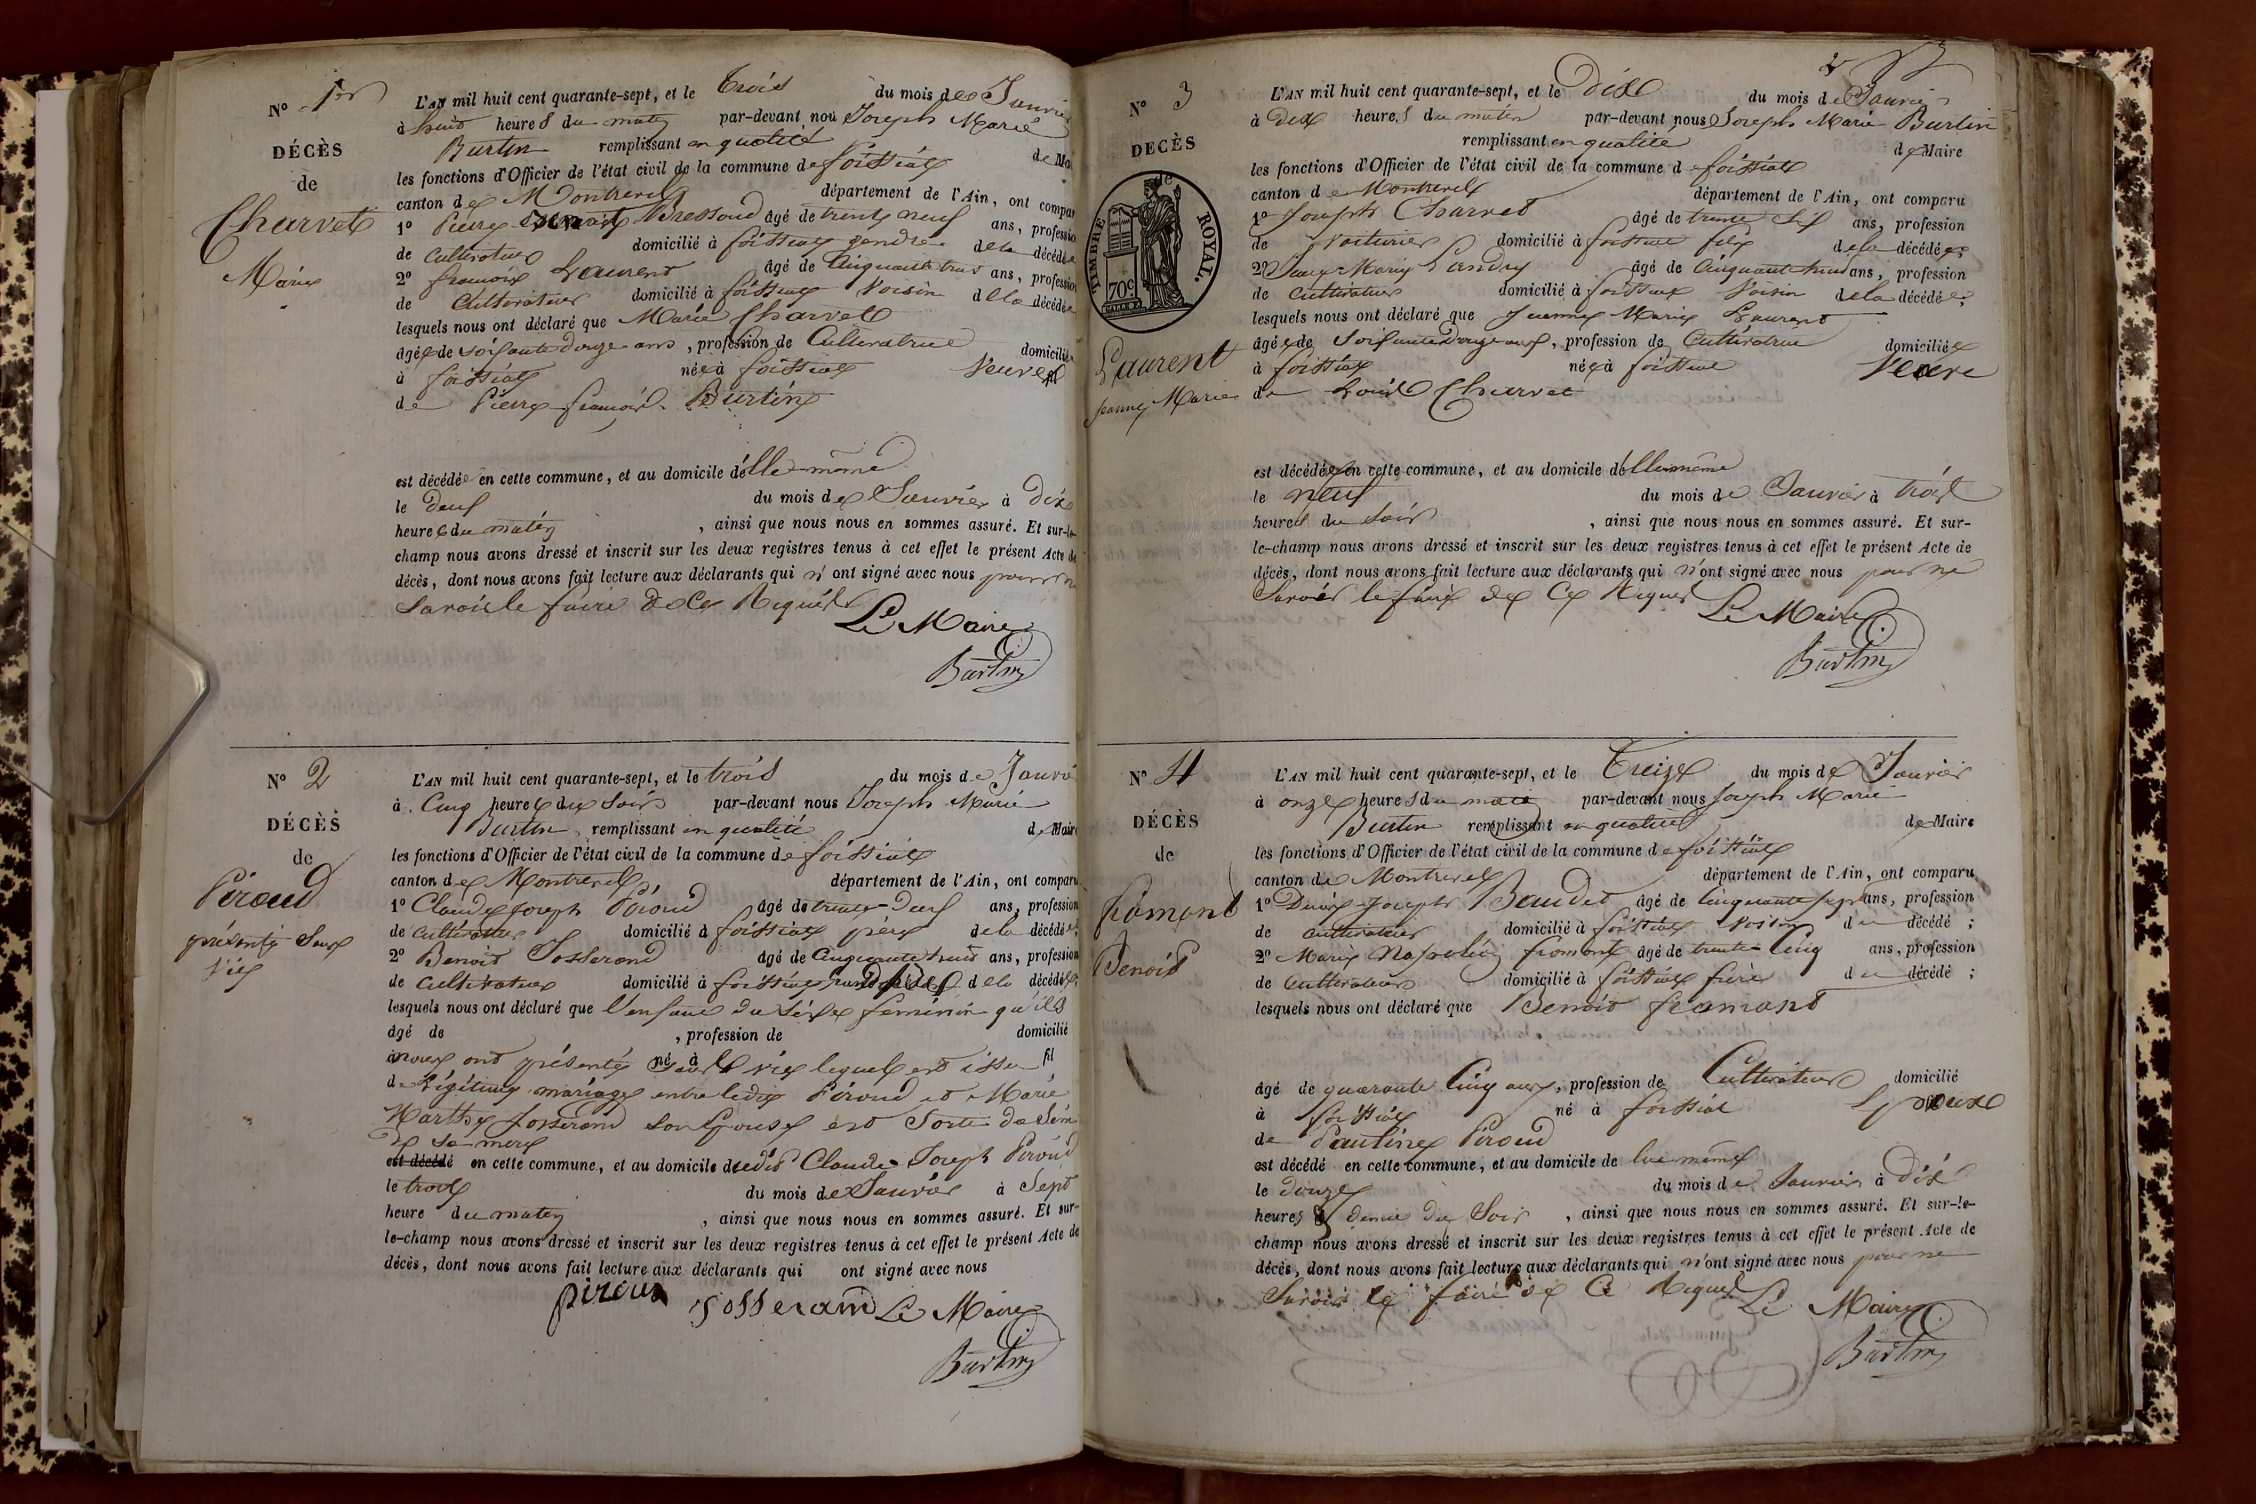 N° 1er
DÉCÈS
de
Charvet
Marie
L'AN mil huit cent quarante-sept, et le trois du mois de Janvier
à huit heures du matin par-devant nous Joseph Marie
Burtin remplissant en qualité de Maire
les fonctions d'Officier de l'état civil de la commune de foissiat
canton de Montrevel département de l'Ain, ont comparu
1° Pierre Bressoud âgé de trente neuf ans, profession
de cultivateur domicilié à foissiat gendre de la décédée
2° francois Laurent âgé de cinquante trois ans, profession
de Cultivateur domicilié à foissiat Voisin de la décédée
lesquels nous ont déclaré que Marie Charvet
agée de soixante douze ans, profession de Cultivatrice domiciliée
à foissiat née à foissiat Veuve
de Pierre francois Burtin
est décédée en cette commune, et au domicile d'elle même
le deux du mois de Janvier à dix
heures du matin, ainsi que nous nous en sommes assuré. Et sur-le-
champ nous avons dressé et inscrit sur les deux registres tenus à cet effet le présent Acte de
décès, dont nous avons fait lecture aux déclarants qui n'ont signé avec nous pour ne
savoir le faire de ce Requis
Le Maire
Burtin
N° 2
DÉCÈS
de
Piroud
présenté sans
vie
L'AN mil huit cent quarante-sept, et le trois du mois de Janvier
à Cinq heures du soir par-devant nous Joseph Marie
Burtin remplissant en qualité de Maire
les fonctions d'Officier de l'état civil de la commune de foissiat
canton de Montrevel département de l'Ain, ont comparu
1° Claude Joseph Piroud âgé de trente deux ans, profession
de cultivateur domicilié à foissiat père de la décédée;
2° Benoit Josserand âgé de cinquante huit ans, profession
de cultivateur domicilié à foissiat de la décédée;
lesquels nous ont déclaré que l'enfant du sexe feminin qu'ils
agé de , profession de domicilié
à nous ont présenté né à sans vie lequel est issu fil
de légitime mariage entre ledit Piroud et Marie
Marthe Josserand son Epouse est sorti du sein
de sa mere
est décédé en cette commune, et au domicile dudit Claude Joseph Piroud
le trois du mois de Janvier à Sept
heure du matin, ainsi que nous nous en sommes assuré. Et sur-
le-champ nous avons dressé et inscrit sur les deux registres tenus à cet effet le présent Acte de
décès, dont nous avons fait lecture aux déclarants qui ont signé avec nous
piroud josserand Le Maire
Burtin
N° 3
DECÈS
de
TIMBRE ROYAL.
70c
Laurent
Jeanne Marie
L'AN mil huit cent quarante-sept, et le dix du mois de Janvier
à dix heures du matin par-devant nous Joseph Marie Burtin
remplissant en qualité de Maire
les fonctions d'Officier de l'état civil de la commune de foissiat
canton de Montrevel département de l'Ain, ont comparu
1° Joseph Charvet âgé de trente six ans, profession
de Voiturier domicilié à foissiat fils de la décédée;
2° Jean Marie Landry âgé de cinquante huit ans, profession
de cultivateur domicilié à foissiat Voisin de la décédée;
lesquels nous ont déclaré que Jeanne Marie Laurent
agée de soixante douze ans, profession de Cultivatrice domiciliée
à foissiat née à foissiat Veuve
de Louis Charvet
est décédée en cette commune, et au domicile d'elle même
le neuf du mois de Janvier à trois
heures du soir, ainsi que nous nous en sommes assuré. Et sur-
le-champ nous avons dressé et inscrit sur les deux registres tenus à cet effet le présent Acte de
décès, dont nous avons fait lecture aux déclarants qui n'ont signé avec nous pour ne
savoir le faire de ce Requis Le Maire
Burtin
N° 4
DÉCÈS
de
fromont
Benoit
L'AN mil huit cent quarante-sept, et le treize du mois de Janvier
à onze heures du matin par-devant nous Joseph Marie
Burtin remplissant en qualité de Maire
les fonctions d'Officier de l'état civil de la commune de foissiat
canton de Montrevel département de l'Ain, ont comparu
1° Denis Joseph Baudet âgé de Cinquante sept ans, profession
de cultivateur domicilié à foissiat Voisin du décédé;
2° Marie Napoléon fromont âgé de trente Cinq ans, profession
de cultivateur domicilié à foissiat frère du décédé;
lesquels nous ont déclaré que Benoit fromont
agé de quarante Cinq ans, profession de Cultivateur domicilié
à foissiat né à foissiat Epoux
de Pauline Piroud
est décédé en cette commune, et au domicile de lui même
le douze du mois de Janvier à dix
heures & demie du soir, ainsi que nous nous en sommes assuré. Et sur-le-
champ nous avons dressé et inscrit sur les deux registres tenus à cet effet le présent Acte de
décès, dont nous avons fait lecture aux déclarants qui n'ont signé avec nous pour ne
savoir le faire de ce Requis Le Maire
Burtin